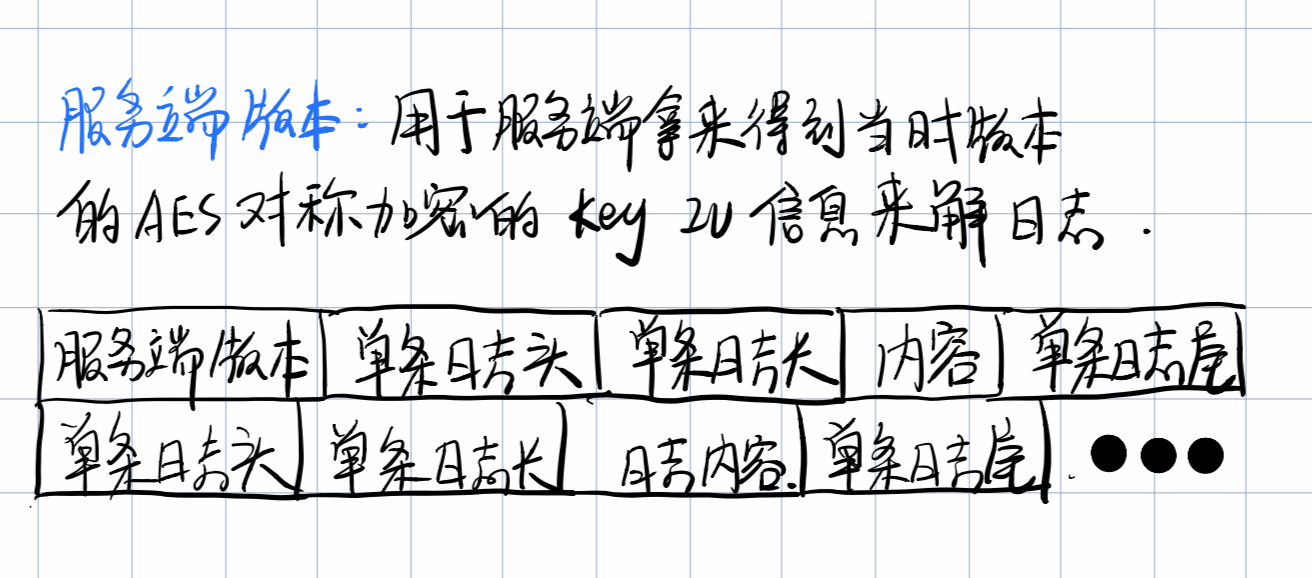 服务端版本：用于服务端拿来得到当时版本
的AES对称加密的 key IV 信息来解日志.
服务端版本 单条日志头 单条日志长 内容 单条日志尾
单条日志头 单条日志长 日志内容. 单条日志尾 ●●●